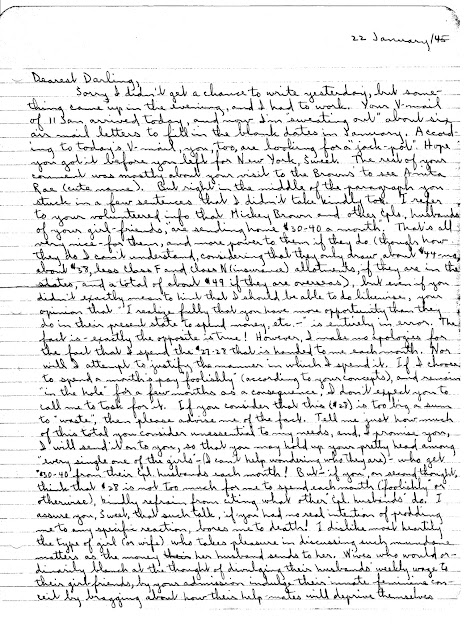 22 January/45
Dearest Darling,
Sorry I didn't get a chance to write yesterday, but some-
thing came up in the evening, and I had to work. Your V-mail
of 11 Jan arrived today, and now I'm "sweating out" about six
air mail letters to fill in the blank dates in January. Accord-
ing to today's V-mail, you, too, are looking for a "jack-pot". Hope
you got it before you left for New York, Sweet. The rest of your
comment was mostly about your visit to the Browns to see Anita
Rae (cute name). But right in the middle of the paragraph you
stuck in a few sentences that I didn't take kindly too. I refer
to your volunteered info that Mickey Brown and other Cpls, husbands
of your girl-friends, are sending home $30-40 a month. That's all
very nice - for them, and more power to them if they do (though how
they do I can't understand, considering that they only draw about $44-no,
about $37, less class F and class N (insurance) allotments, if they are in the
states, and a total of about $49 if they are overseas), but even if you
didn't exactly mean to hint that I should be able to do likewise, your
opinion that "I realize fully that you have more opportunity than they
do in their present state to spend money, etc.-" is entirely in error. The
fact is - exactly the opposite is true! However, I make no apologies for
the fact that I spend the $27-28 that is handed to me each month. Nor
will I attempt to justify the manner in which I spend it. If I choose
to spend a month's pay foolishly (according to your concepts), and remain
"in the hole" for a few months as a consequence, I don't expect you to
call me to task for it. If you consider that this ($28) is too big a sum
to "waste", then please advise me of the fact. Tell me just how much
of this total you consider unessential to my needs, and, I promise you,
I will send it on to you, so that you may hold up your pretty head among
"every single one of the girls" - (I can't help wondering who they are) - who get
$30-40 from their Cpl. husbands each month! But - if you, on second thought,
think that $28 is not too much for me to spend each month (foolishly or
otherwise), kindly refrain from citing what other Cpl. husbands do. I
assure you, Sweet, that such talk, if you had no real intention of prodding
me to any specific reaction, bores me to death! I dislike most heartily
the type of girl (or wife) who takes pleasure in discussing such mundane
matters as the money her husband sends to her. Wives who would or-
dinarily blanch at the thought of divulging their husbands' weekly wage to
their girl friends, by your admission indulge their innate feminine con-
ceit by bragging about how their help-mates will deprive themselves